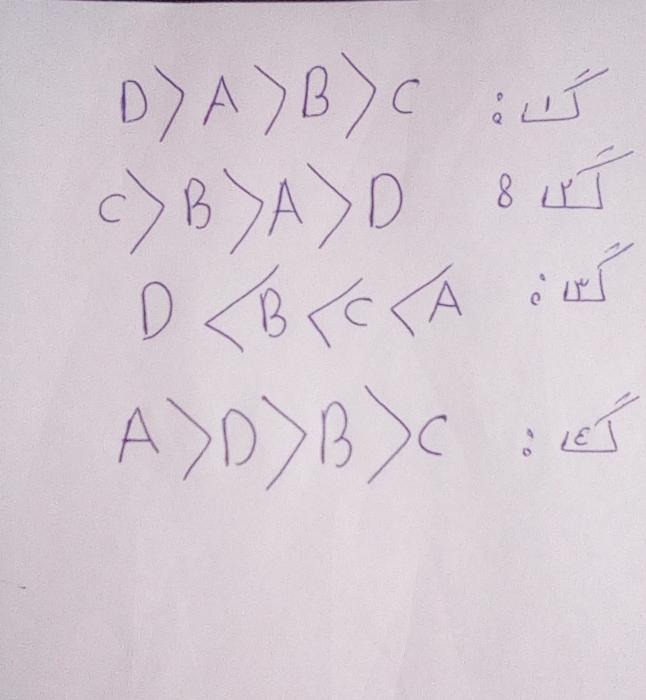 گ١: D > A > B > C
گ٢: C > B > A > D
گ٣: D < B < C < A
گ٤: A > D > B > C